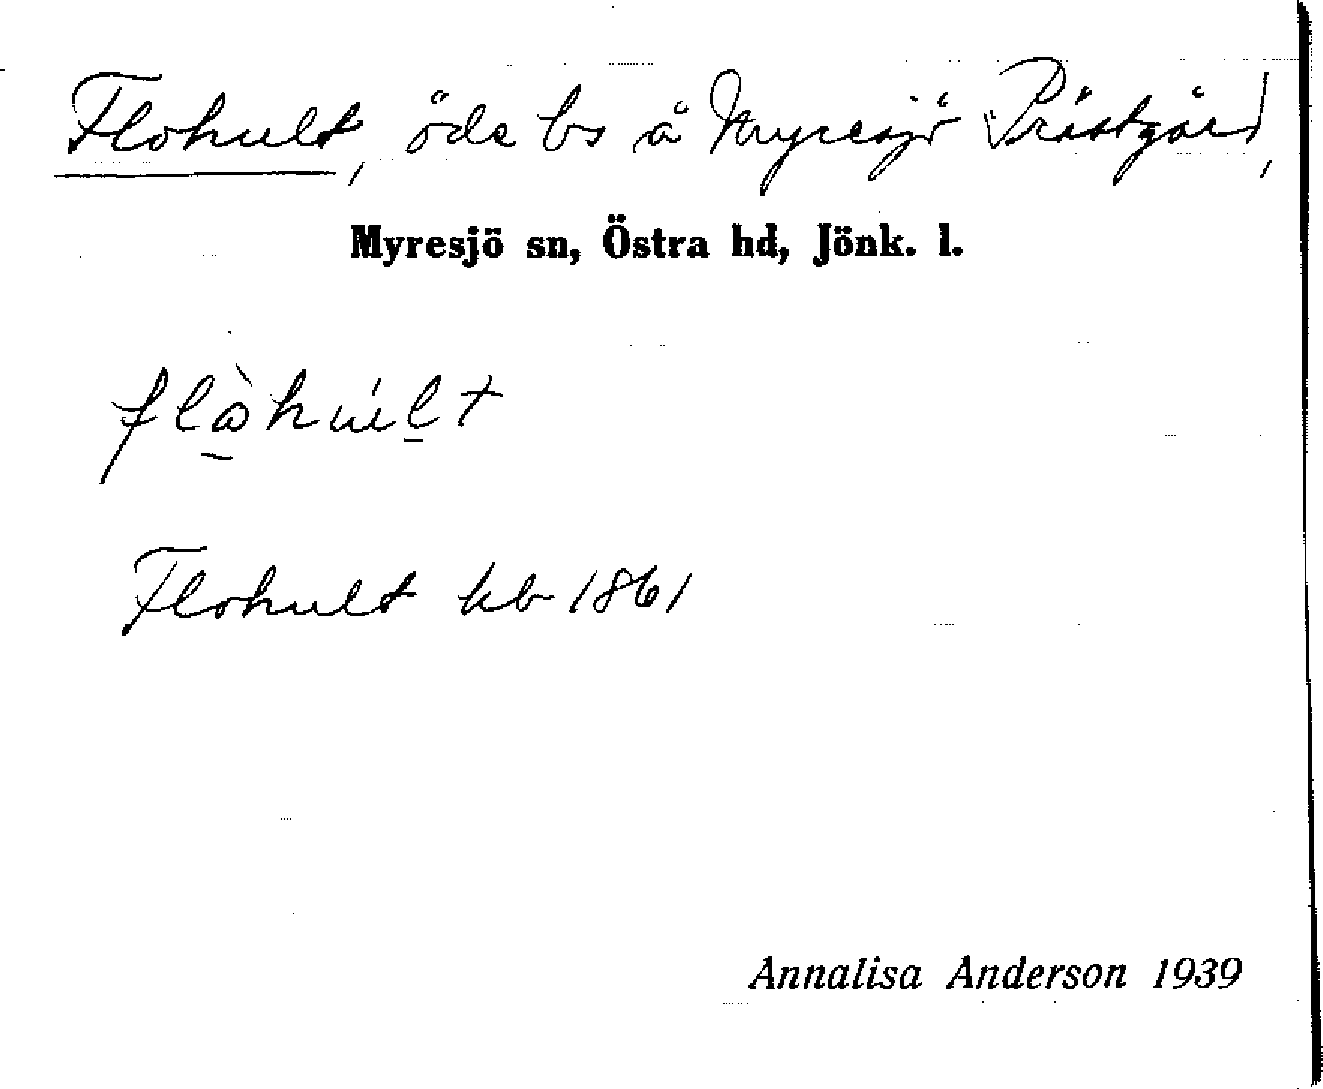 Flohult, öde bs å Myresjö Prästgård,
Myresjö sn, Östra hd, Jönk. l.
flàhu̇lt
Flohult kb 1861
Annalisa Anderson 1939